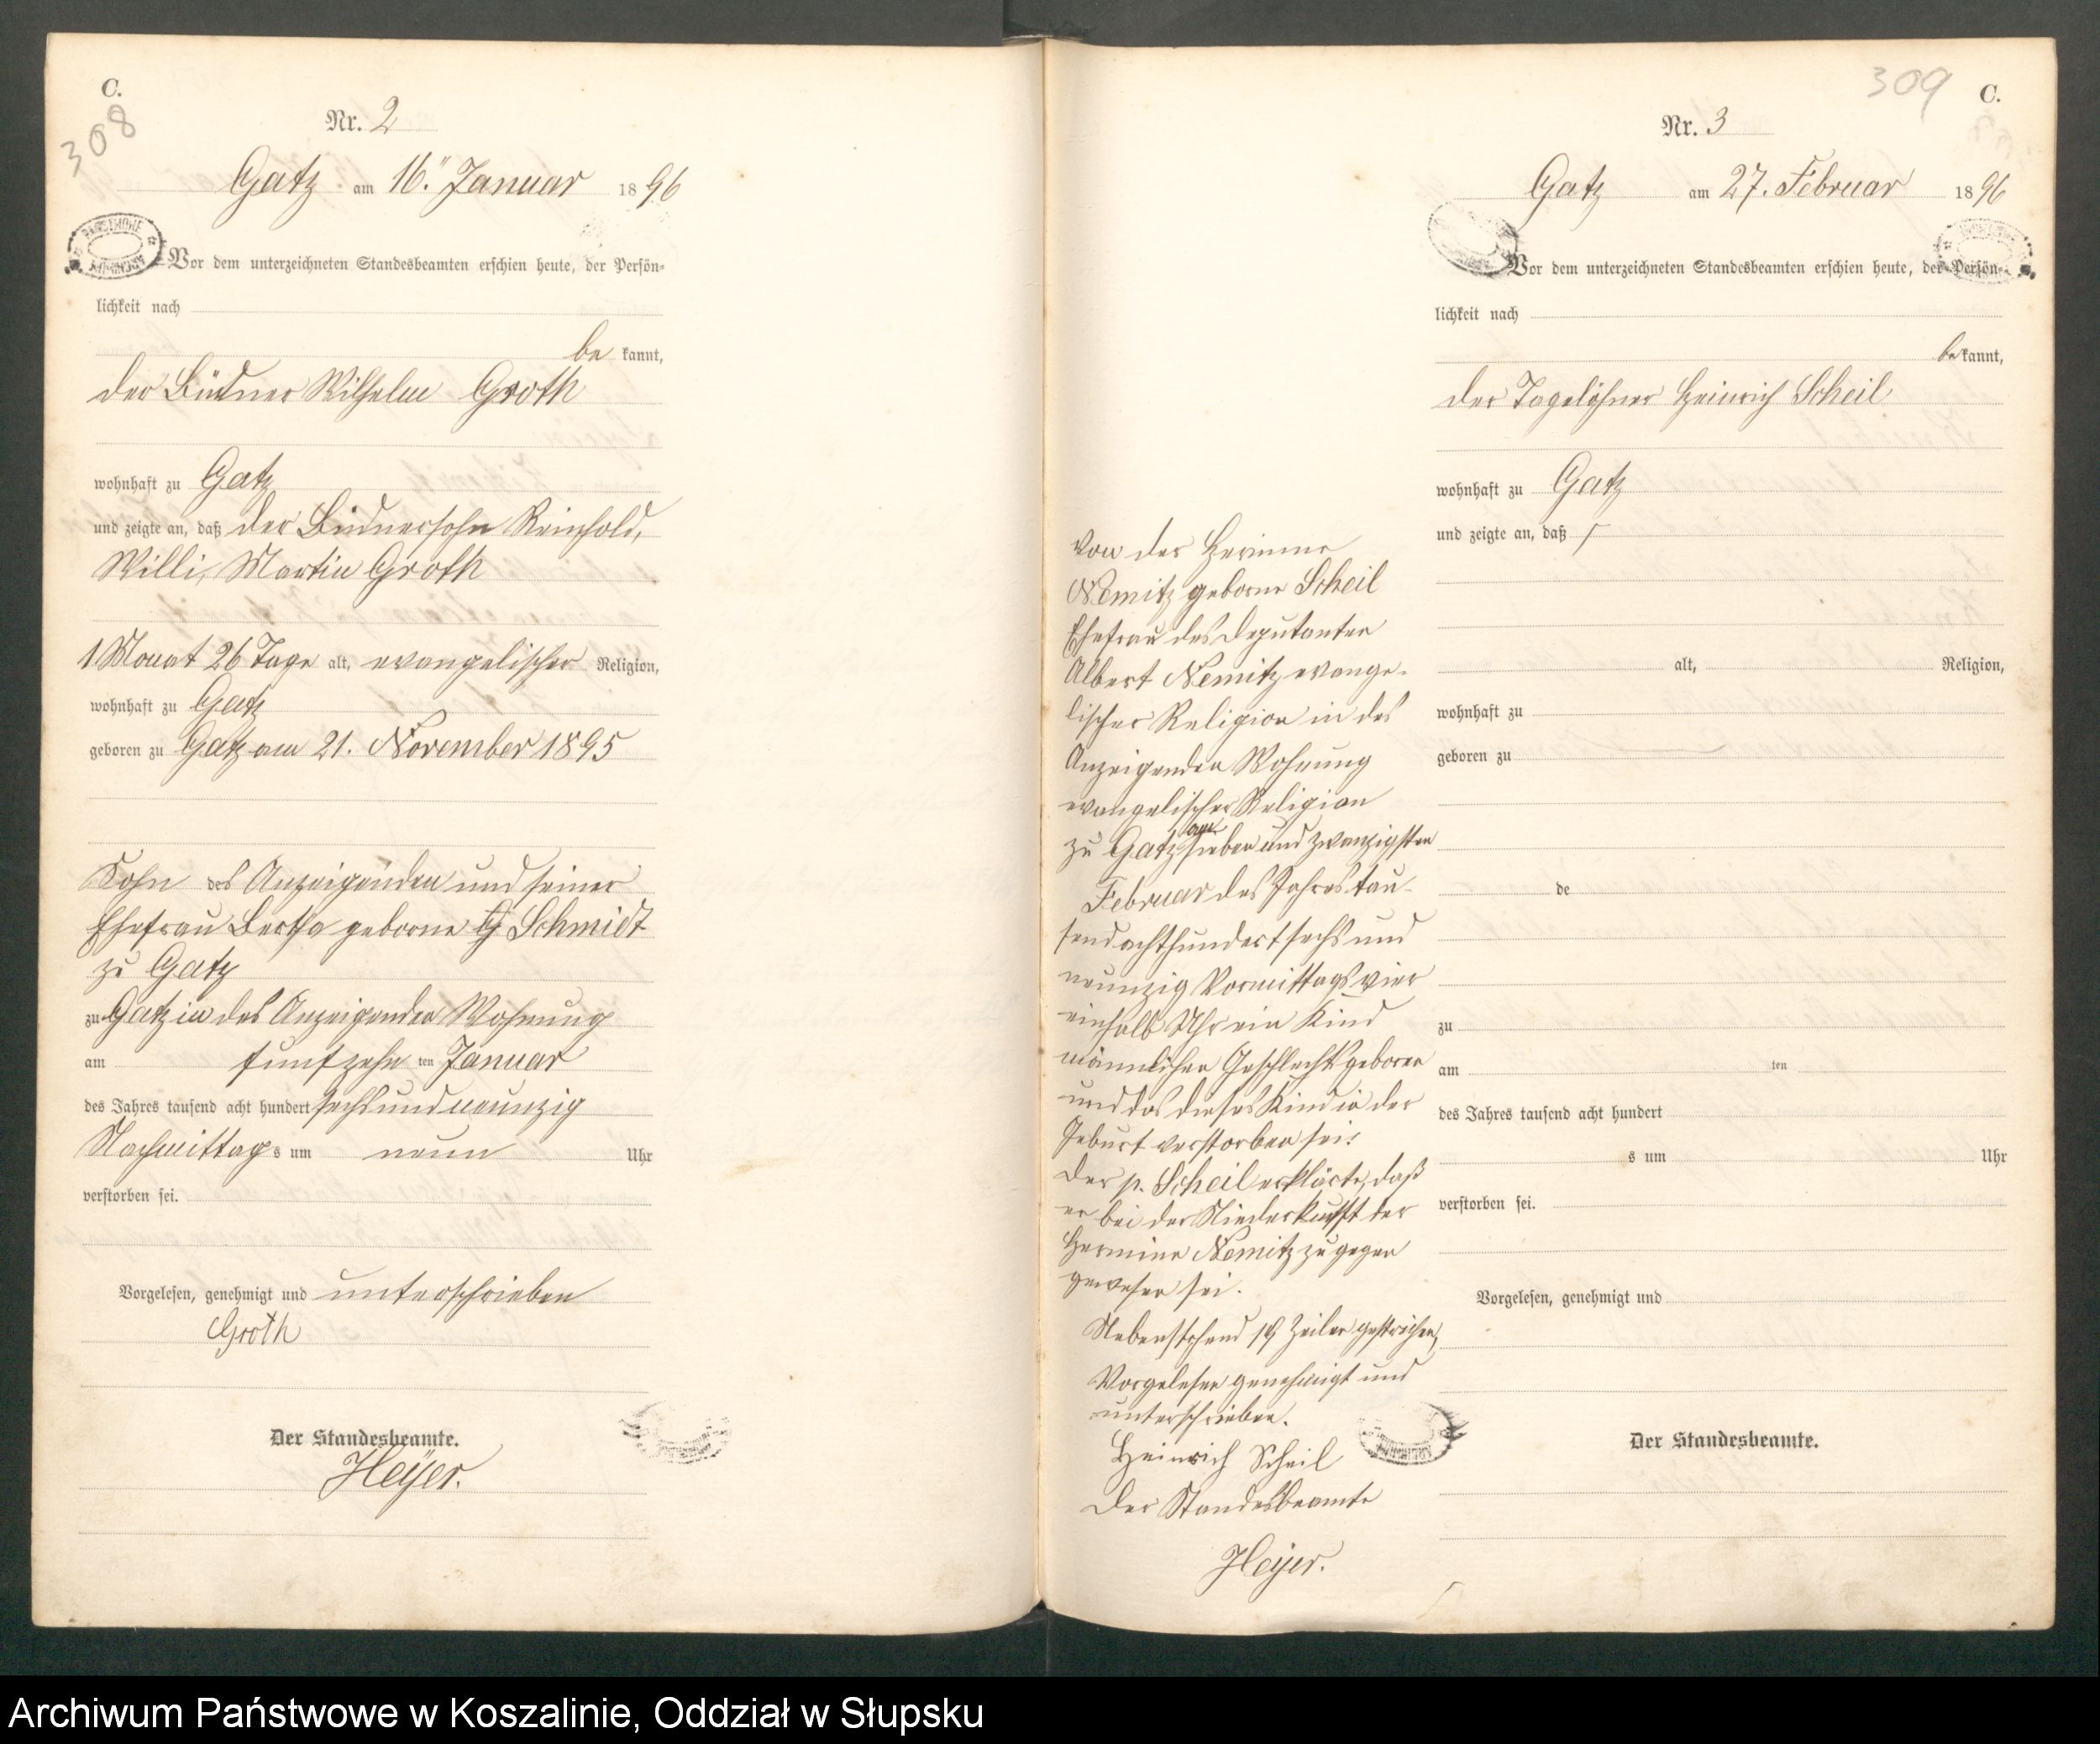 C.
308
Nr. 2
Gatz am 16. Januar 1896
Vor dem unterzeichneten Standesbeamten erschien heute, der Persön-
lichkeit nach
be kannt,
der Büdner Wilhelm Groth
wohnhaft zu Gatz
und zeigte an, daß der Büdnersohn Reinhold,
Willi, Martin Groth
1 Monat 26 Tage alt, evangelischer Religion,
wohnhaft zu Gatz
geboren zu Gatz am 21. November 1895
Sohn des Anzeigenden und seiner
Ehefrau Bertha geborne Schmidt
zu Gatz
zu Gatz in des Anzeigenden Wohnung
am fünfzehn ten Januar
des Jahres tausend acht hundert sechs und neunzig
Nachmittags um neun Uhr
verstorben sei.
Vorgelesen, genehmigt und unterschrieben
Groth
Der Standesbeamte.
Heyer.
309
C.
Nr. 3
Gatz am 27. Februar 1896
Vor dem unterzeichneten Standesbeamten erschien heute, der Persön-
lichkeit nach
be kannt,
der Tagelöhner Heinrich Scheil
wohnhaft zu Gatz
und zeigte an, daß
von der Hermine
Nemitz geborne Scheil
Ehefrau des Deputanten
Albert Nemitz evange-
lischer Religion in des
Anzeigenden Wohnung
evangelischer Religion
zu Gatz am sieben und zwanzigsten
Februar des Jahres tau-
send achthundert sechs und
neunzig Vormittags vier
einhalb Uhr ein Kind
männlichen Geschlechts geboren
und das dieses Kind in der
Geburt verstorben sei.
Der p. Scheil erklärte, daß
er bei der Niederkunft der
Hermine Nemitz zugegen
gewesen sei.
Nebenstehend 19 Zeilen gestrichen,
Vorgelesen genehmigt und
unterschrieben.
Heinrich Scheil
Der Standesbeamte
Heyer.
alt, Religion,
wohnhaft zu
geboren zu
de
zu
am ten
des Jahres tausend acht hundert
s um Uhr
verstorben sei.
Vorgelesen, genehmigt und
Der Standesbeamte.
Archiwum Państwowe w Koszalinie, Oddział w Słupsku